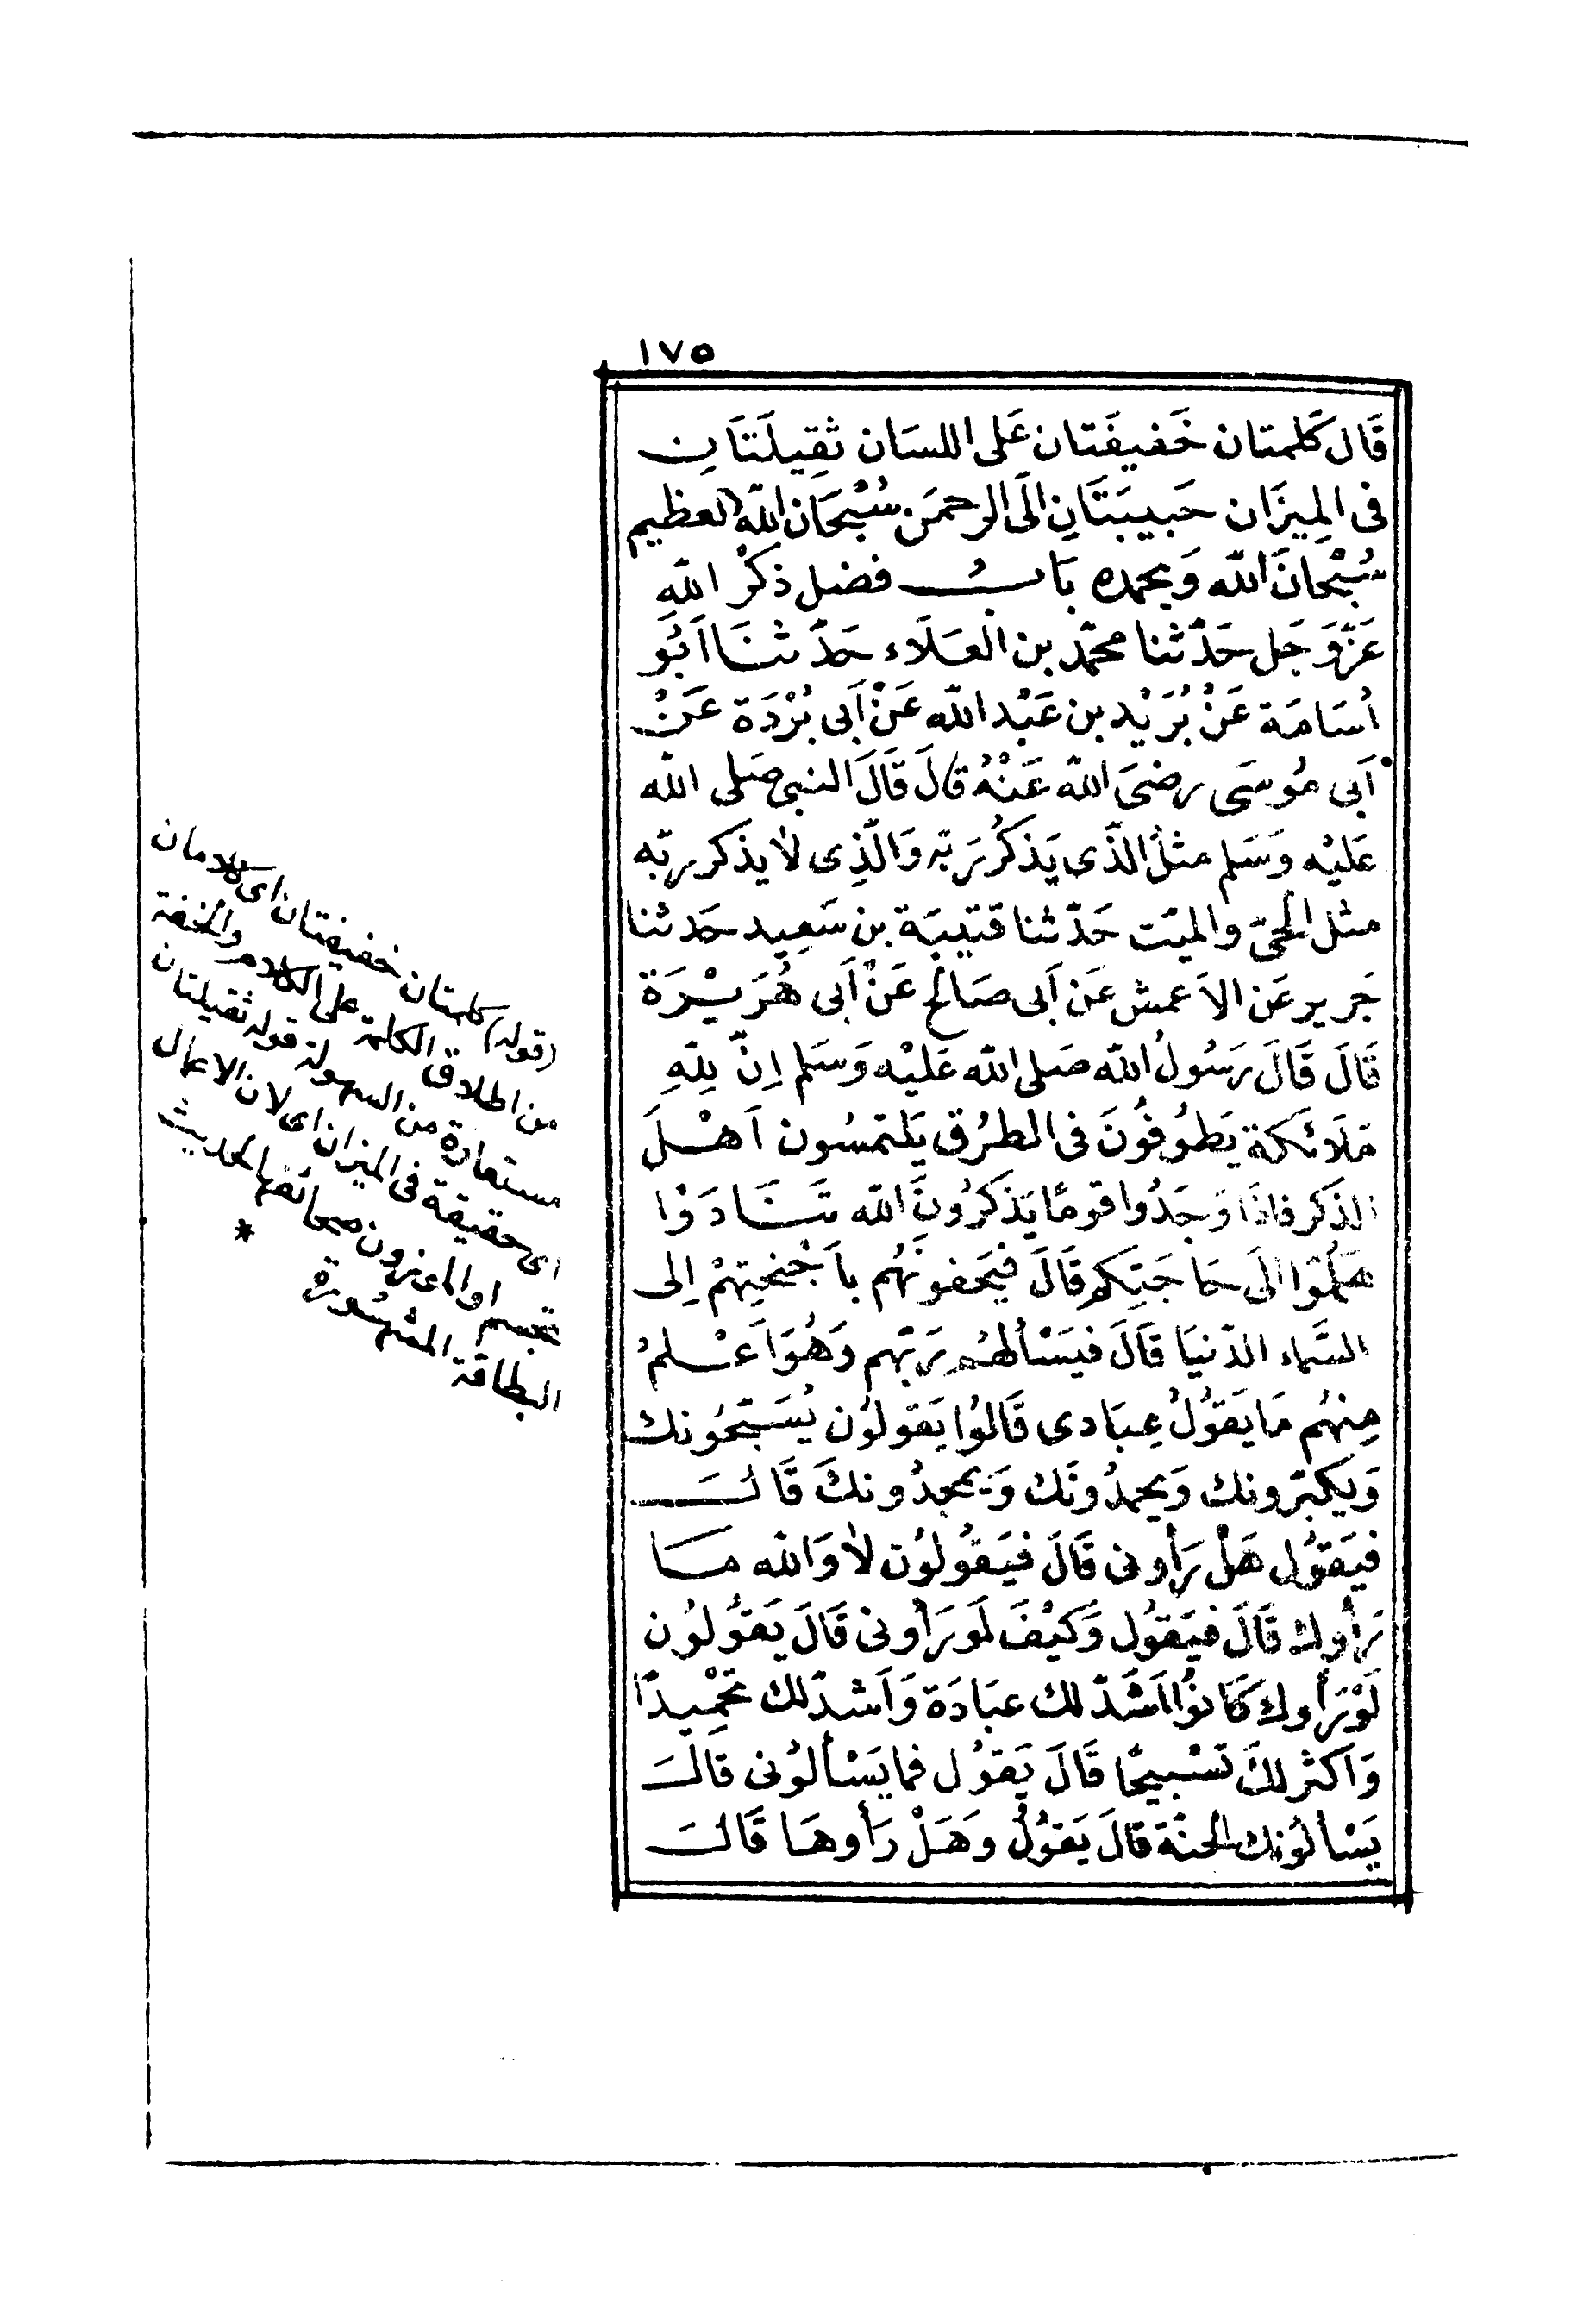 ١٧٥
قَال كَلمتان خَفيفَتان عَلى اللسَان ثقِيلَتَانِ
فى المِيزَان حَبيبَتَانِ الَى الرحمَن سُبْحَان الله العظيم
سُبْحانَ الله وَبحمده بَابُ فضل ذكْر اللهِ
عَزَّوَجَل حَدّثنا محمّد بن العَلَاء حَدّثنَا اَبُو
اُسَامَة عَنْ بُرَيْد بن عَبْد الله عَنْ اَبى بُرْدَة عَنْ
اَبى مُوسَى رضىَ الله عَنْهُ قالَ قَالَ النبى صَلى الله
عَليْه وَسَلم مثلُ الّذى يَذكرُ رَبّه وَالّذِى لا يذكر ربّه
مثل الحىّ والميّت حَدّثنا قتيبَة بن سَعِيد حَدثنا
جَرير عَن الاَعمش عَن اَبى صَالح عَنْ اَبى هُرَيْرَة
قَالَ قَالَ رَسُولُ الله صَلى الله عَليْه وَسَلم اِنّ لِلّهِ
مَلَائكة يَطوُفُونَ فى الطرُق يَلتمسُون اَهْلَ
الذكر فاذَا وَجَدُوا قومًا يَذكرُونَ الله تَنَادَوْا
هَلُمّوا الَى حَاجَتِكم قَالَ فيَحفونَهُم باَجْنحِتِهمْ اِلى
السَّماء الدّنيَا قَالَ فيَسْألهُم رَبّهم وَهُوَ اَعْلمُ
مِنهُم مَا يَقوُلُ عِبَادى قَالوُا يَقولوُن يُسَبّحُونك
وَيكبّرونك وَيحمدُونَك وَيمجدُونكَ قَالَ
فيَقوُل هَلْ رَأونى قَالَ فيَقُولوُن لا وَالله مَا
رَأوك قَالَ فيَقوُل وَكيْفَ لَو رَأونى قَالَ يَقوُلوُن
لَوْ رَأوك كَانوُا اَشَدّ لك عبَادَة وَاَشدّ لك تحْمِيدًا
وَاَكثر لكَ تَسْبيحًا قَالَ يَقوُل فما يَسْألوُنى قَالَ
يَسْألوُنك الجنّة قَالَ يَقوُلُ وَهَلْ رَأوهَا قَالَ
(قوله) كلمتان خفيفتان اى كلامان
من اطلاق الكلمة على الكلام والخفة
مستعارة من السهولة قوله ثقيلتان
اى حقيقة فى الميزان اى لان الاعمال
تجسم او الموزون صحائفها لحديث
البطاقة المشهورة *